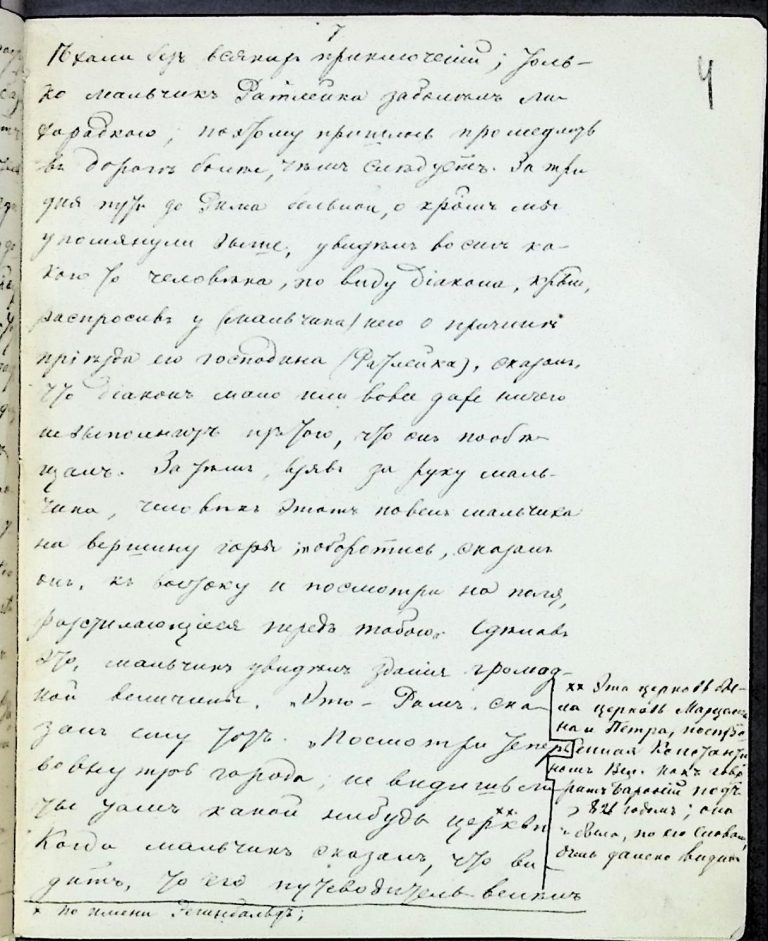 7
4
Ѣхали безъ всякихъ приключенiй; толь-
ко мальчикъ Ратлейка заболѣлъ ли-
хорадкою; поэтому пришлось промедлить
въ дорогѣ болѣе, чѣмъ слѣдуетъ. За три
дня пути до Рима больной, о кромъ мы
упомянули выше, увидѣлъ во снѣ ка-
кого то человѣка, по виду дiакона, кры,
распросивъ у (мальчика) него о причинѣ
прiѣзда его господина (Ратлейка), сказалъ,
что дiаконъ мало или вовсе даже ничего
не выполнитъ изъ того, что онъ пообѣ-
щалъ. Затѣмъ, взявъ за руку маль-
чика, человѣкъ этотъ повелъ мальчика
на вершину горы; „оборотись, сказалъ
онъ, къ востоку и посмотри на поля,
разстилающiеся передъ тобою. Сдѣлавъ
это, мальчикъ увидѣлъ зданiя громад-
ной величины. „Это - Римъ. ска-
залъ ему тотъ. „Посмотри теперь
во внутрь города, не видишь ли
ты тамъ какой нибудь церкви xx
Когда мальчикъ сказалъ, что ви-
дитъ, то его путеводитель велѣлъ
x по имени Регинбальдъ;
xx Эта церковь бы-
ла церковь Марцели-
на и Петра, построе-
енная Константи-
номъ Вел. какъ гово-
ритъ Баронiй подъ
826 годомъ; она
была, по его словамъ,
очень далеко видна